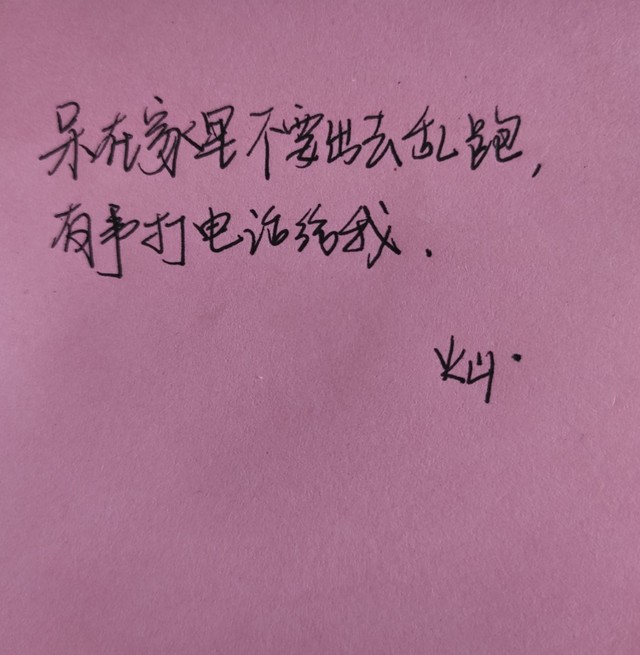 呆在家里不要出去乱跑,
有事打电话给我.
灿.